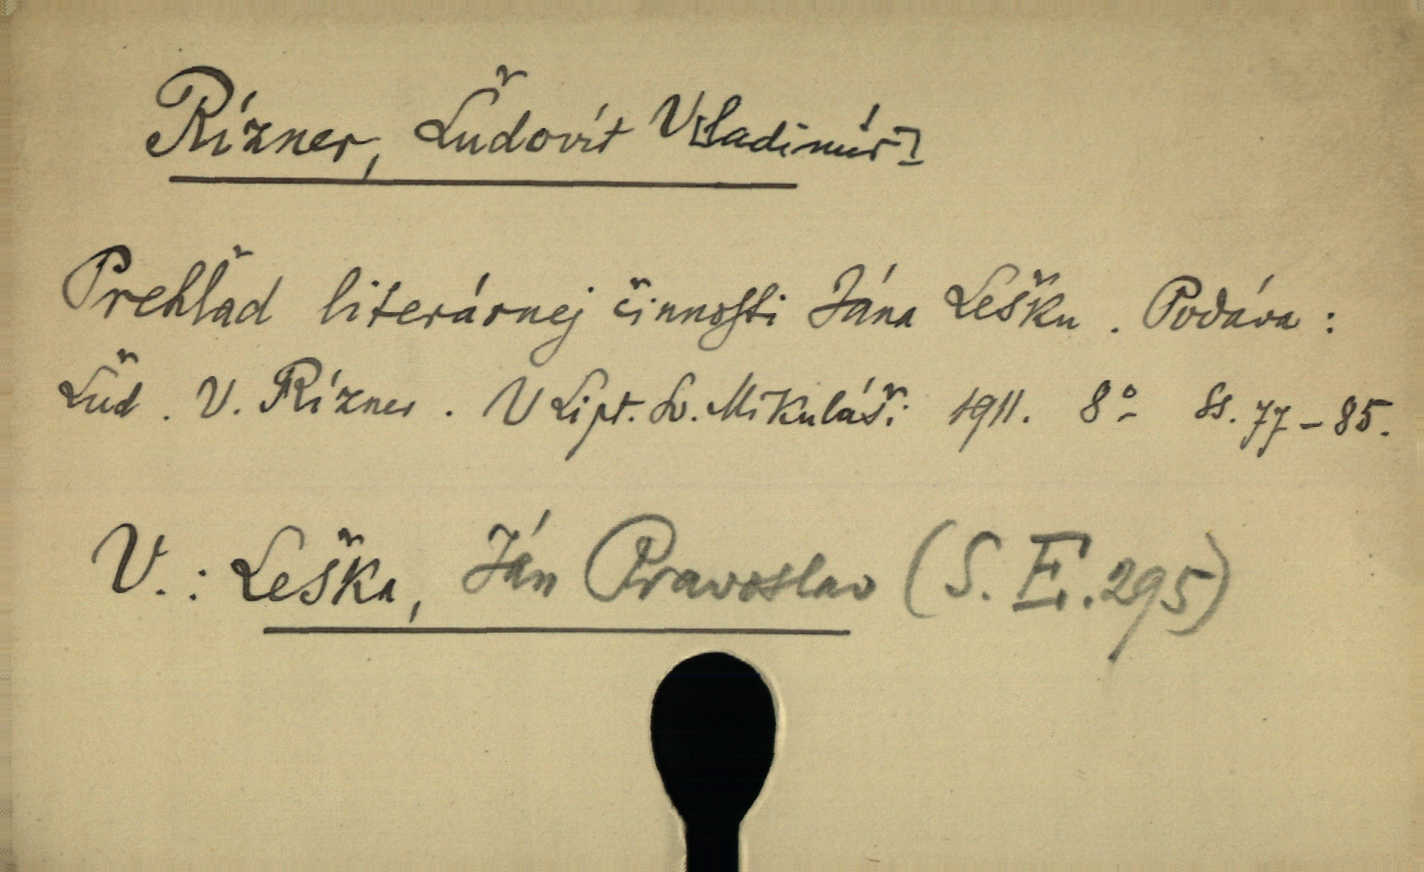 Rízner, Ľudovít V[ladimír]
Prehľad literárnej činnosti Jána Lešku. Podáva:
Ľud. V. Rízner. V Lipt. Sv. Mikuláši 1911. 8° Ss. 77-85.
V.: Leška, Ján Pravoslav (S. II. 295)